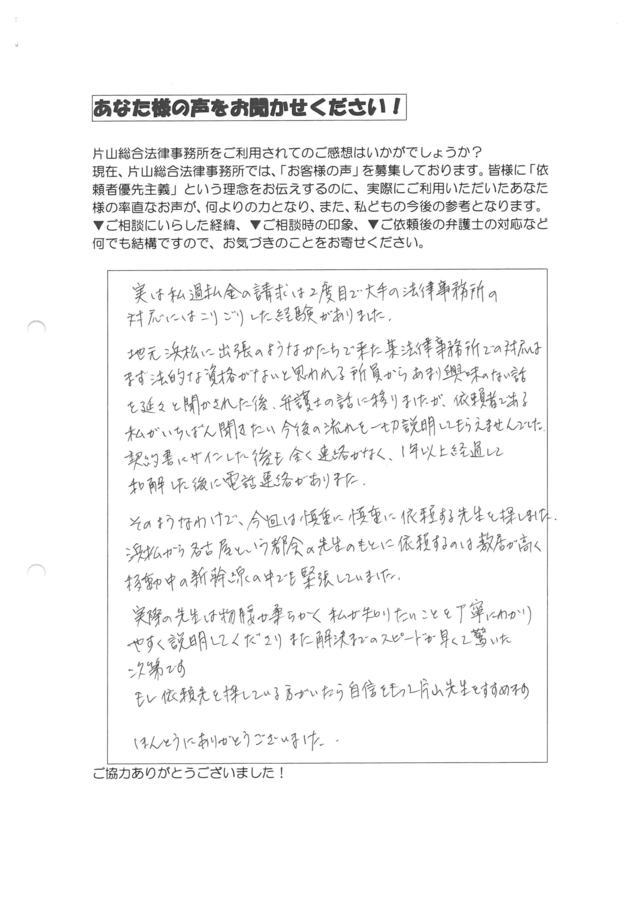 あなた様の声をお聞かせください！
片山総合法律事務所をご利用されてのご感想はいかがでしょうか？
現在、片山総合法律事務所では、「お客様の声」を募集しております。皆様に「依
頼者優先主義」という理念をお伝えするのに、実際にご利用いただいたあなた
様の率直なお声が、何よりの力となり、また、私どもの今後の参考となります。
▼ご相談にいらした経緯、▼ご相談時の印象、▼ご依頼後の弁護士の対応など
何でも結構ですので、お気づきのことをお寄せください。
実は私過払金の請求は2度目で大手の法律事務所の
対応にはこりごりした経験がありました。
地元浜松に出張のようなかたちで来た某法律事務所での対応は
まず法的な資格がないと思われる所員からあまり興味のない話
を延々と聞かされた後、弁護士の話に移りましたが、依頼者である
私がいちばん聞きたい今後の流れを一切説明してもらえませんでした。
契約書にサインした後も全く連絡がなく、1年以上経過して
和解した後に電話連絡がありました。
そのようなわけで、今回は慎重に慎重に依頼する先生を探しました。
浜松から名古屋という都会の先生のもとに依頼するのは敷居が高く
移動中の新幹線の中でも緊張していました。
実際の先生は物腰が柔らかく私が知りたいことを丁寧にわかり
やすく説明してくださりまた解決までのスピードが早くて驚いた
次第です
もし依頼先を探している方がいたら自信をもって片山先生をすすめます
ほんとうにありがとうございました。
ご協力ありがとうございました！